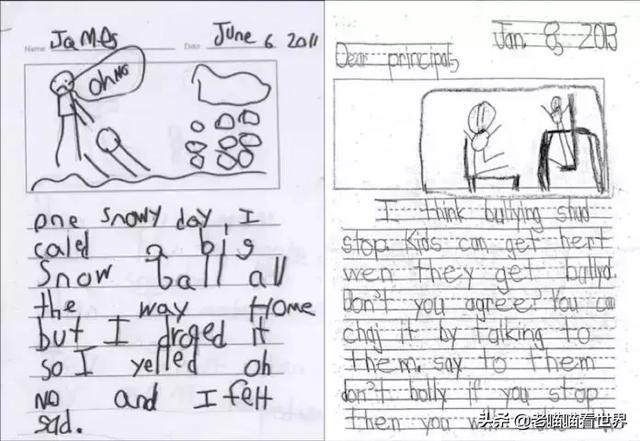 Name James Date June 6. 2011
oh No
one snowy day, I
caled a big
Snow ball all
the way Home
but I droged it
so I yelled oh
No and I felt
sad.
Jan. 8, 2013
Dear principal,
I think bullying shud
stop. Kids can get hert
wen they get bullyd.
Don't you agree? You can
chaj it by talking to
them. say to them
don't bolly if you stop
then you
头条 @老喵喵看世界